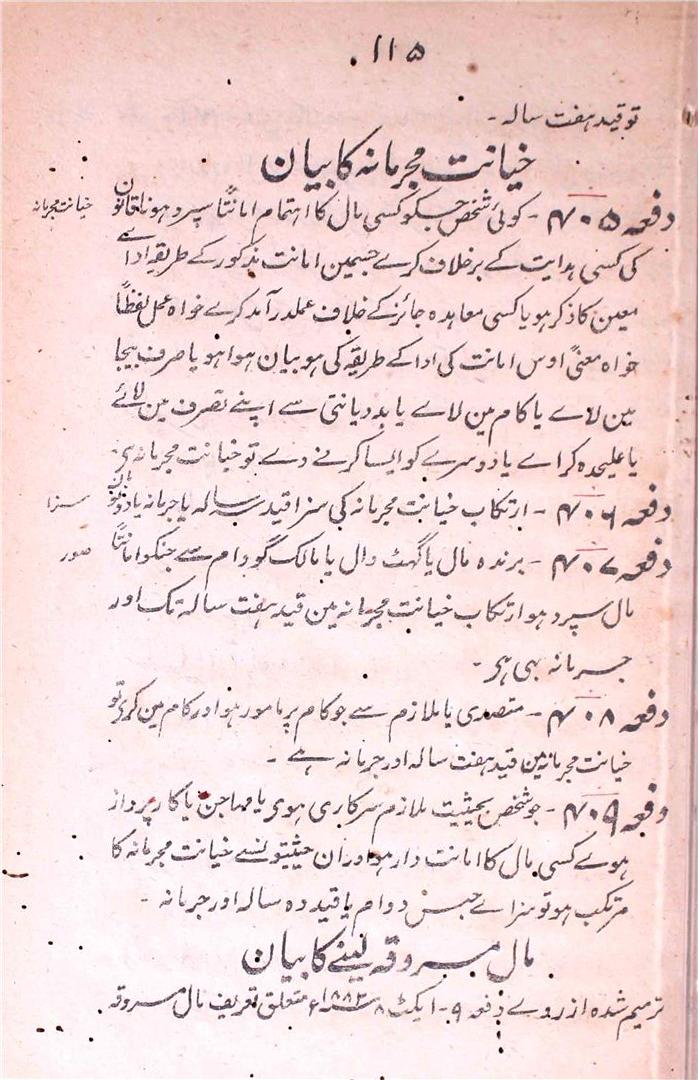 ۱۱۵
تو قید ہفت سالہ -
خیانت مجرمانہ کا بیان
دفعہ ۴۰۵ - کوئی شخص جسکو کسی مال کا اہتمام امانتاً سپرد ہو وہ قانون
خیانت مجرمانہ
کی کسی ہدایت کے برخلاف کرے جسمین امانت مذکور کے طریقہ ادا سے
معین کا ذکر ہو یا کسی معاہدہ جائز کے خلاف عملدرآمد کرے خواہ عمل لفظاً
خواہ معنیً اوس امانت کی ادا کے طریقہ کی ہو بیان ہوا ہو یا صرف بیجا
مین لاے یا کام مین لاے یا بددیانتی سے اپنے تصرف مین لائے
یا علیحدہ کراے یا دوسرے کو ایسا کرنے دے تو خیانت مجرمانہ ہی
دفعہ ۴۰۶ - ارتکاب خیانت مجرمانہ کی سزا قید سہ سالہ یا جرمانہ یا دونون
سزا
دفعہ ۴۰۷ - برندہ مال یا گھٹ وال یا مالک گودام سے جنکو امانتاً
صور
مال سپرد ہو ارتکاب خیانت مجرمانہ مین قید ہفت سالہ تک اور
جرمانہ بہی ہی -
دفعہ ۴۰۸ - متصدی یا ملازم سے جو کام پر مامور ہو اور کام مین کری تو
خیانت مجرمانہ مین قید ہفت سالہ اور جرمانہ ہے -
دفعہ ۴۰۹ - جو شخص بحیثیت ملازم سرکاری ہوی یا مہاجن یا کارپرداز
ہوے کسی مال کا امانت دار ہو اور ان حیثیتو نسے خیانت مجرمانہ کا
مرتکب ہو تو سزاے حبس دوام یا قید دہ سالہ اور جرمانہ -
مال مسروقہ لینے کا بیان
ترمیم شدہ از روے دفعہ ۹ - ایکٹ ۸ ۱۸۸۲ء متعلق تعریف مال مسروقہ